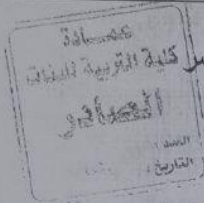 عمادة
كلية التربية للبنات
الصادر
العدد :
التاريخ :